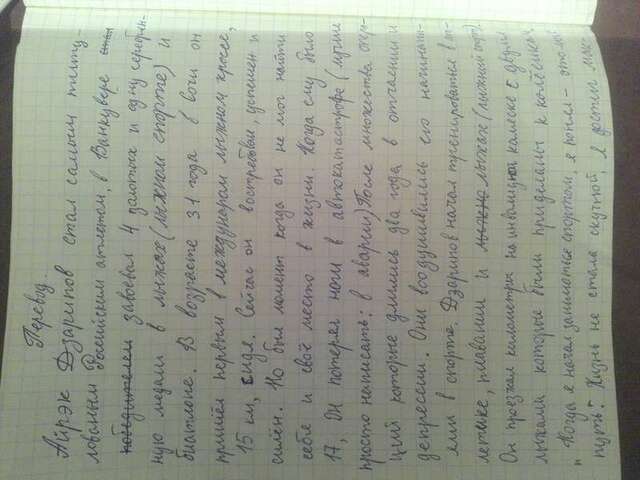 Перевод.
Айрэк Дзарипов стал самым титу-
лованым Российским атлетом, в Ванкувере
победителем завоевал 4 золотых и одну серебрян-
ную медали в лыжах (лыжном спорте) и
биатлоне. В возрасте 31 года в Сочи он
пришёл первым в международном лыжном кроссе,
15 км, сидя. Сейчас он востребован успешен и
силён. Но был момент когда он не мог найти
себя и своё место в жизни. Когда ему было
17, Он потерял ноги в автокатастрофе (лучше
просто написать: в аварии) После множества опера-
ций которые длились два года в отчаянии и
депрессии. Они воодушивились его начинать-
ями в спорте. Дзарипов начал тренироваться в ат-
летике, плавании и лыжах (лыжный спорт)
Он проезжал километры на инвалидной коляске с двумя
лыжами которые были приделаны к колёсикам.
"Когда я начал заниматься спортом, я понял-
путь: Жизнь не стала скучной, я достиг мако